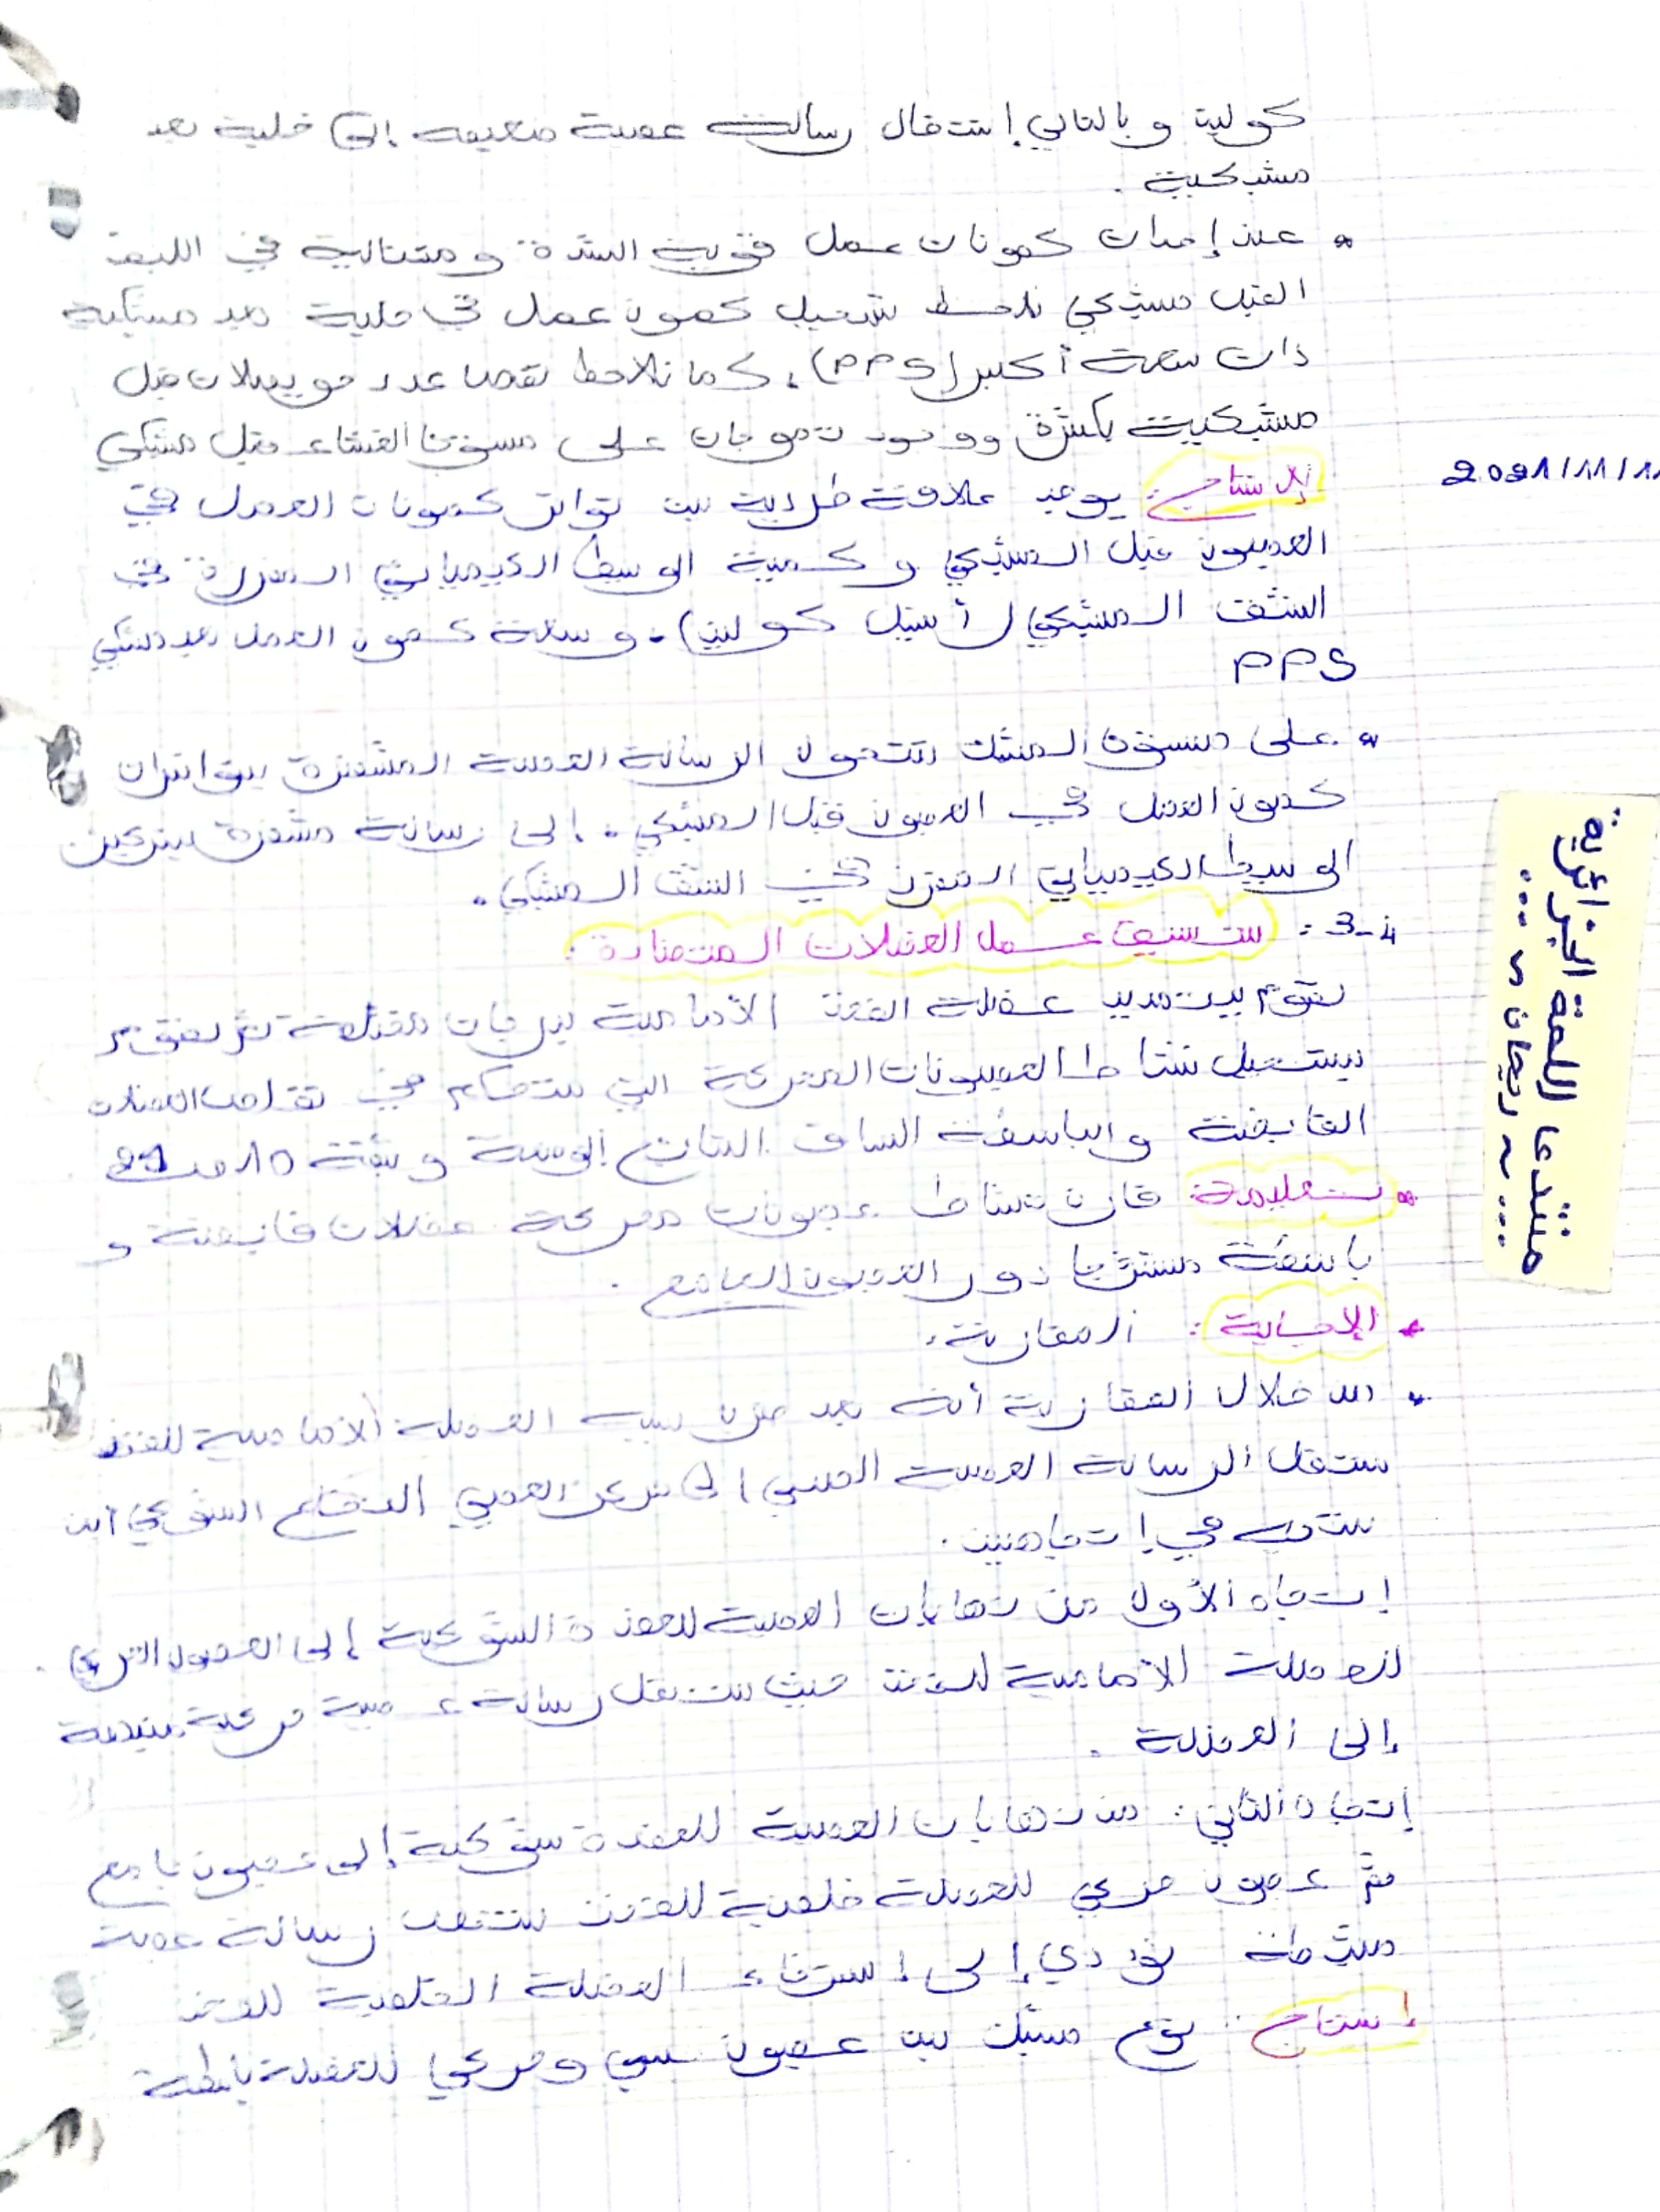 كولين وبالتالي إنتقال رسالة عصبية ضعيفة إلى خلية بعد
مشبكية .
* عند إحداث كمونات عمل قوية الشدة و متتالية في الليف
القبل مشبكي نلاحظ تسجيل كمون عمل في خلية بعد مشبكية
ذات سعة أكبر (PPS) ، كما نلاحظ نقص عدد حويصلات قبل
مشبكية بكثرة ووجود تموجات على مستوى الغشاء قبل مشبكي
2021/11/11
الإستنتاج : يوجد علاقة طردية بين تواتر كمونات العمل في
العصبون قبل المشبكي و كمية الوسيط الكيميائي المفرزة في
الشق المشبكي (أستيل كولين) . و سعة كمون العمل بعد مشبكي
PPS
* على مستوى المشبك تتحول الرسالة العصبية المشفرة بتواترات
كمون العمل في العصبون قبل المشبكي . إلى رسالة مشفرة بتركيز
الوسيط الكيميائي المفرز في الشق المشبكي .
3-4 : تنسيق عمل العضلات المتضادة :
نقوم بتمديد عضلة الفخذ الأمامية بدرجات مختلفة ثم نقوم
بتسجيل نشاط العصبونات المحركة التي تتحكم في تقلص العضلات
القابضة والباسطة الساق النتائج الوثيقة 10 ص 21
* تعليمة : قارن نشاط عصبونات محركة عضلات قابضة و
باسطة مستنتجا دور العصبون الجامع .
* الإجابة : المقارنة :
* من خلال المقارنة أنه بعد العضلة الأمامية للفخذ
تنتقل الرسالة العصبية الحسي إلى مركز العصبي النخاع الشوكي أين
في إتجاهين .
إتجاه الأول من نهايات العصبية للعقدة الشوكية إلى العصبون الحركي
للعضلة الأمامية للفخذ حيث تنتقل رسالة عصبية حركية منبهة
إلى العضلة .
إتجاه الثاني : من نهايات العصبية للعقدة شوكية إلى عصبون جامع
ثم عصبون حركي للعضلة خلفية للفخذ تنتقل رسالة عصبية
مثبطة تؤدي إلى إسترخاء العضلة الخلفية للفخذ
إستنتاج : نوع مشبك بين عصبون حسي و حركي للعضلة باسطة
منتدى اللمة الجزائرية
... ~ ريحان ~ ...